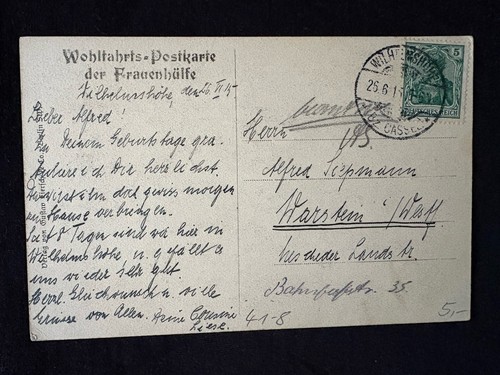 Wohlfahrts-Postkarte
der Frauenhülfe
Wilhelmshöhe, den 26. VI. 15
Lieber Alfred!
Zu Deinem Geburtstage gra-
tuliere ich Dir herzlichst.
dort gewiss morgen
zu Hause verbringen.
Seit 8 Tagen sind wir hier in
Wilhelmshöhe, u. gefällt es
uns wieder sehr gut
Glückwunsch u. viele
Grüsse von Allen. Deine Cousine
Liesel
41-8
WILHELMSHÖHE
26.6.1
CASSEL
5
DEUTSCHES REICH
Herrn
Alfred Siepmann
Warstein i/Westf.
Landstr.
Bahnhofstr. 35
5,-